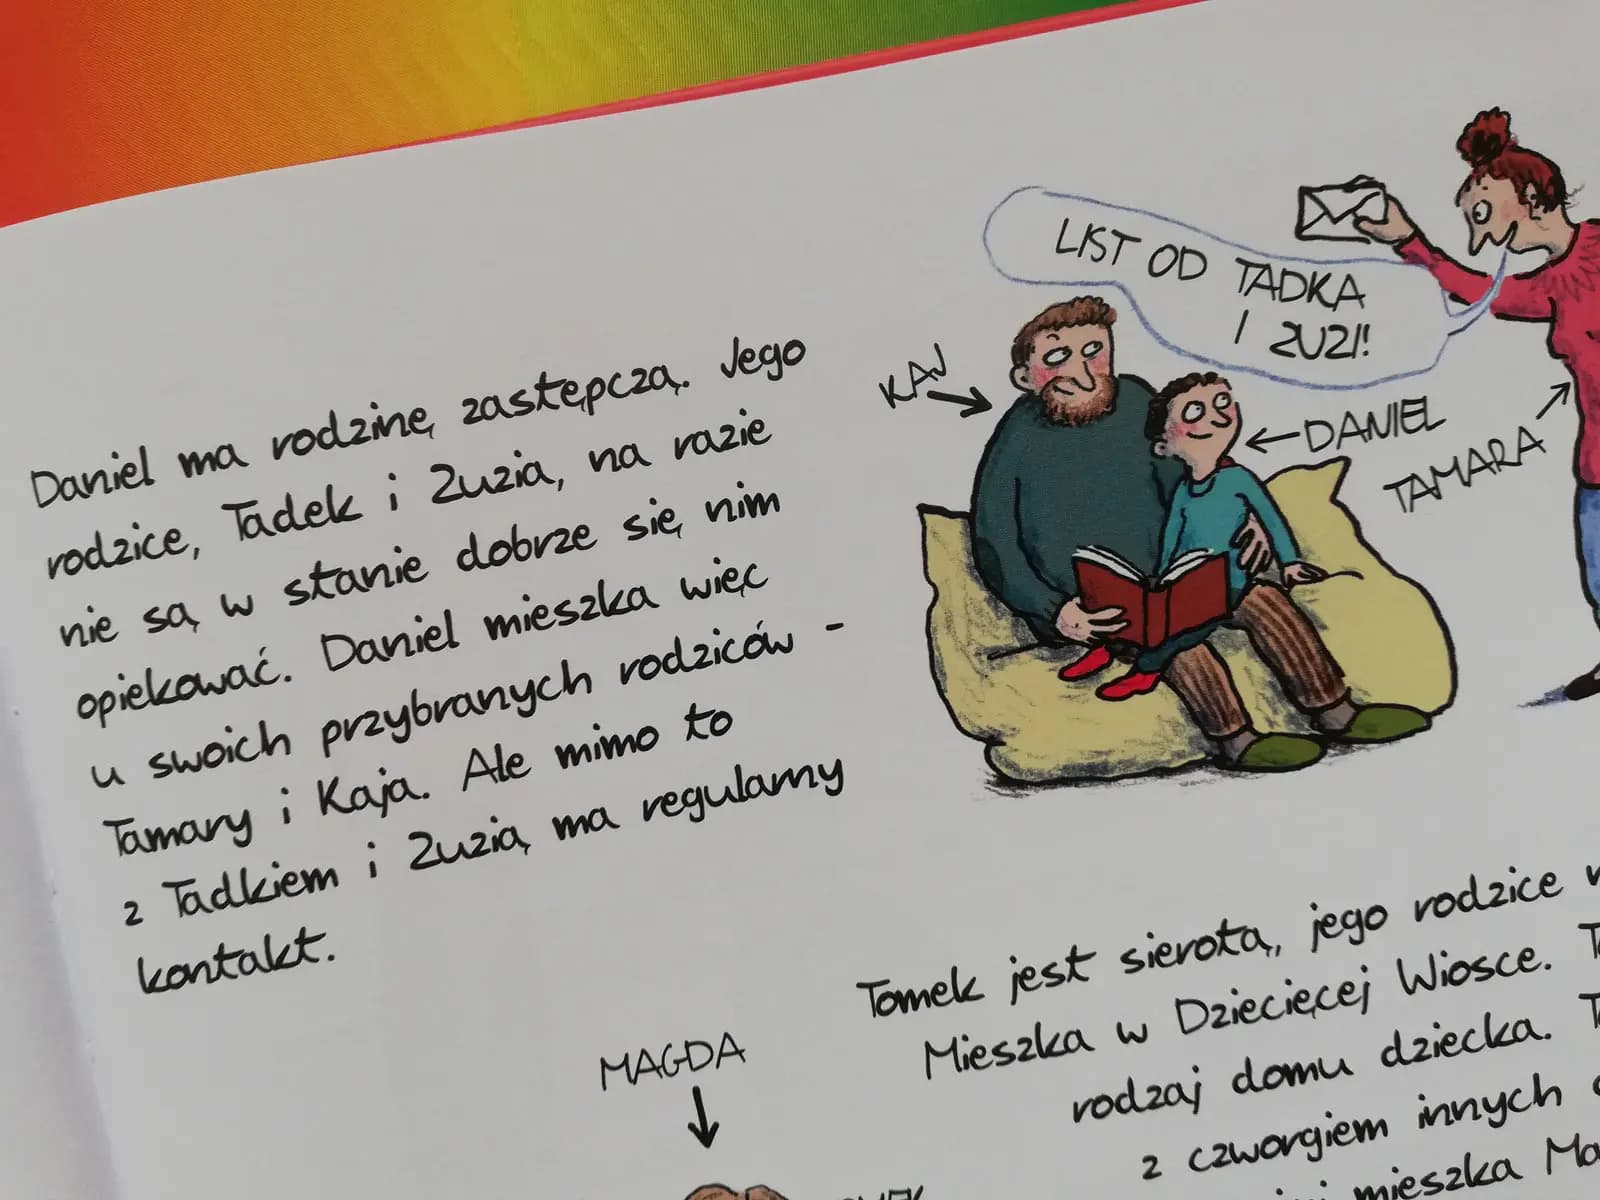 Daniel ma rodzinę zastępczą. Jego
rodzice, Tadek i Zuzia, na razie
nie są w stanie dobrze się nim
opiekować. Daniel mieszka więc
u swoich przybranych rodziców -
Tamary i Kaja. Ale mimo to
z Tadkiem i Zuzią ma regularny
kontakt.
LIST OD TADKA
I ZUZI!
KAJ
DANIEL
TAMARA
Tomek jest sierotą, jego rodzice
Mieszka w Dziecięcej Wiosce.
rodzaj domu dziecka.
z czworgiem innych
mieszka
MAGDA